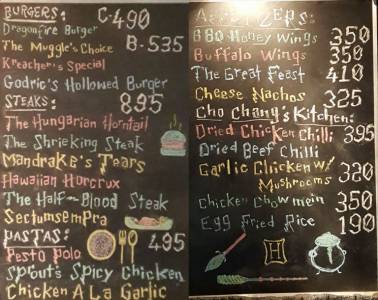 BURGERS: C-490
Dragonfire Burger
The Muggle's Choice B-535
Kreacher's Special
Godric's Hollowed Burger
STEAKS: 895
The Hungarian Horntail
The Shrieking Steak
Mandrake's Tears
Hawaiian Horcrux
The Half-Blood Steak
Sectumsempra
PASTAS: 495
Pesto Polo
Sprout's Spicy Chicken
Chicken A La Garlic
APPETIZERS:
BBQ Honey Wings 350
Buffalo Wings 350
The Great Feast 410
Cheese Nachos 325
Cho Chang's Kitchen:
Dried Chicken Chilli 395
Dried Beef Chilli
Garlic Chicken w/ Mushrooms 320
Chicken Chowmein 350
Egg Fried Rice 190
H